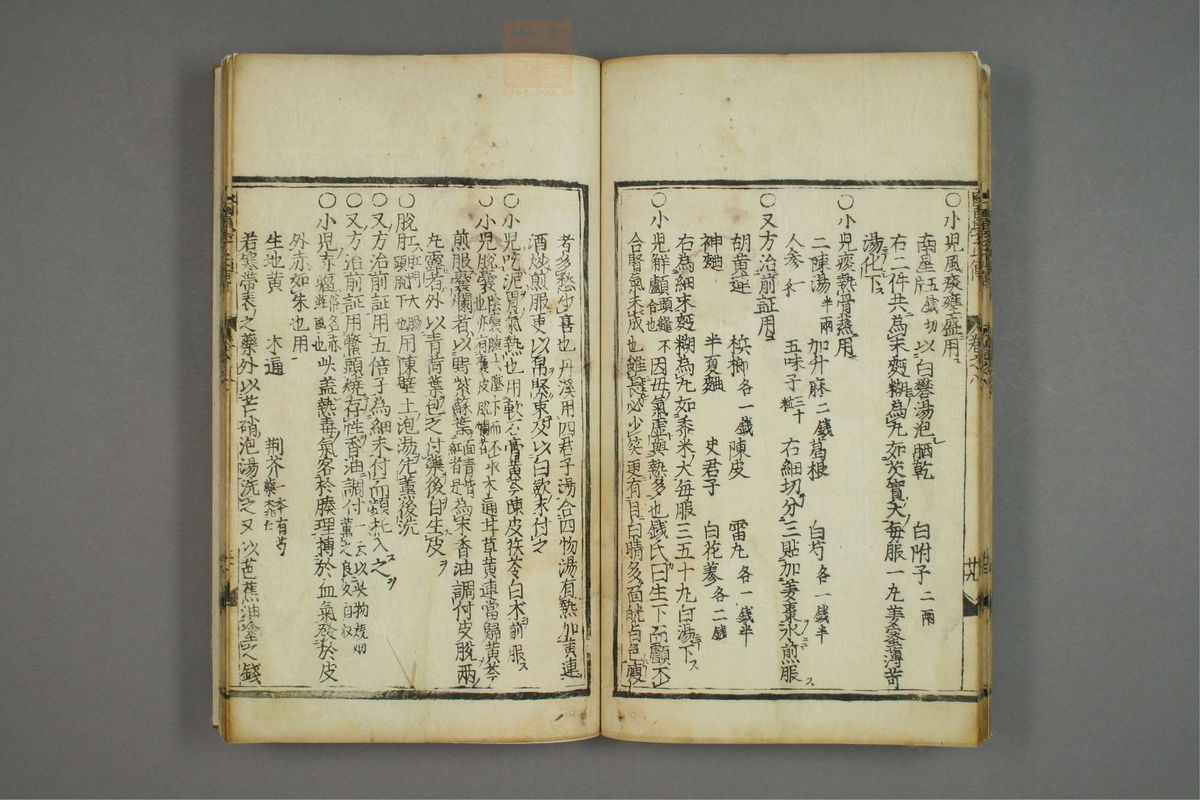 ○小児風痰壅盛用
南星 五戔切片 以白礬湯泡晒乾 白附子 二兩
右二件共為末麪糊為丸如芡實大毎服一丸姜蜜薄苛
湯化下
○小児痰熱骨蒸用
二陳湯 半兩 加升麻 二錢 葛根 白芍 各一錢半
人参 五味子 三十粒 右細切分三貼加姜棗水煎服
○又方治前証用
胡黄連 檳榔 各一錢 陳皮 雷丸 各一錢半
神麯 半夏麯 史君子 白花蓡 各二錢
右為細末麪糊為丸如黍米大毎服三五十丸白湯下
○小児觧顱 頭縫不合也 因母氣虚與熱多也錢氏曰生下而顱不
合腎氣未成也雖長必少笑更有目白睛多面㿠白色瘦
者多愁少喜也丹溪用四君子湯合四物湯有熱加黄連
酒炒煎服更以帛緊束及以白歛末付之
○小児吃泥胃氣熱也用軟石膏黄芩陳皮茯苓白朮煎服
○小児脱嚢 用木通甘草黄連當歸黄芩
煎服嚢爛者以野紫蘇葉 面青背紅者是 為末香油調付皮脱兩
丸露者外以青荷葉包之付藥後自生皮
○脱肛 用陳壁土泡湯先薫後洗
○又方治前証用五倍子為細末付而頻托入之
○又方治前証用鱉頭燒存性香油調付 一云以臭物燒烟薫之良久自収
○小児赤瘤 此盖熱毒氣客於腠理搏於血氣發於皮
外赤如朱也用
生地黄 木通 荆芥 一本有芍藥桃仁
若寒帶表之藥外以芒硝泡湯洗之又以芭蕉油塗之錢